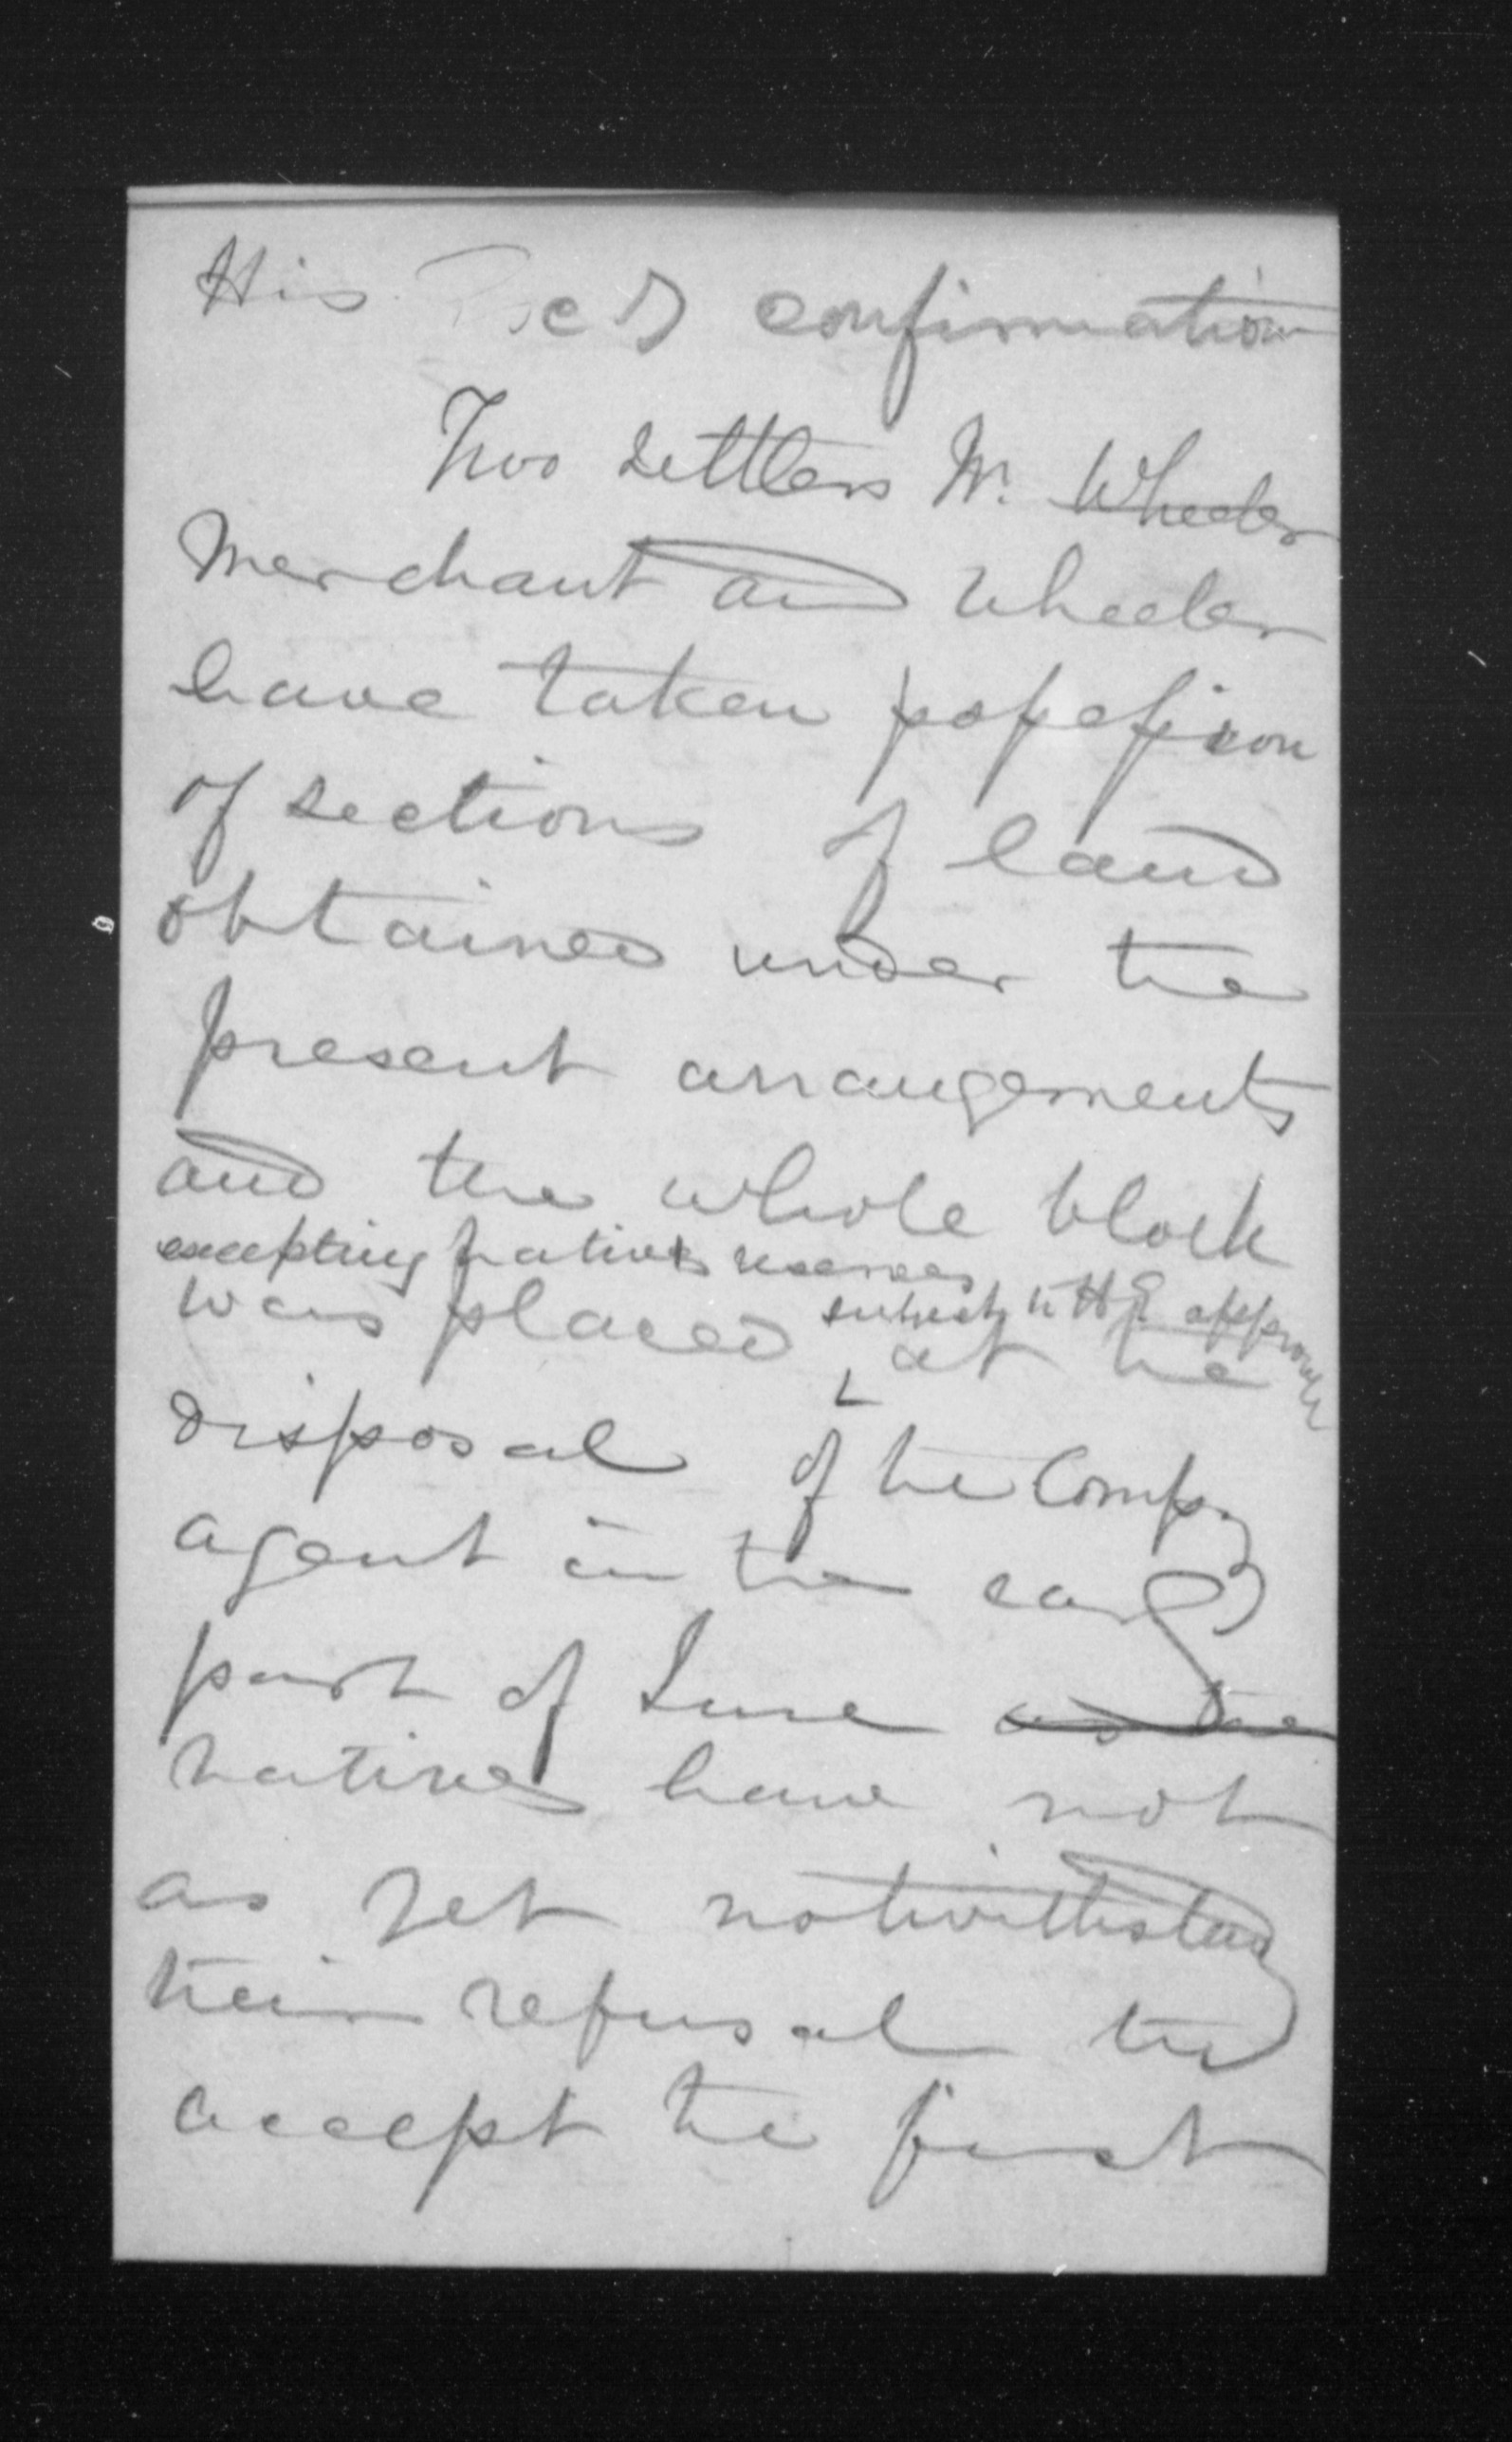 His Excy confirmation
Two settlers Mr. Wheeler
Merchant and Wheeler
have taken possession
of sections of land
obtained under the
present arrangements
and the whole block
excepting natives reserves
was placed subject to HE approval at the
disposal of the Compy
agent in the early
part of June as the
natives have not
as yet notwithstandg
their refusal to
accept the first